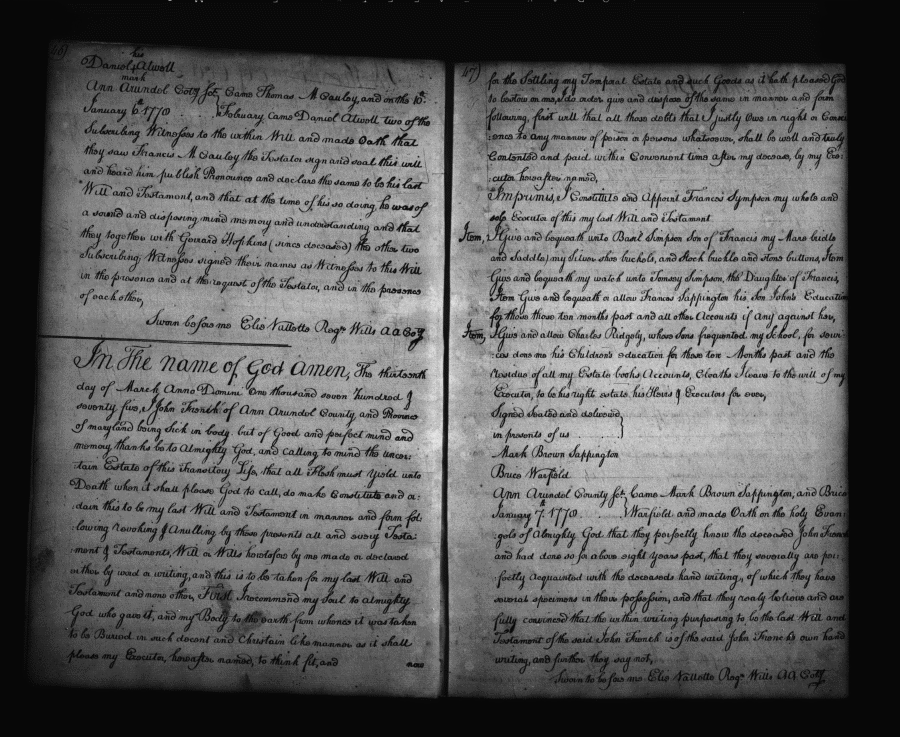 46)
his
Daniel + Atwell
mark
Ann Arundel Coty Sct. Came Thomas McCauley, and on the 10th
January 6th 1778 } February came Daniel Atwell two of the
Subscribing Witnesses to the within Will and made Oath that
they saw Francis McCauley the Testator sign and seal this will
and heard him publish Pronounce and declare the same to be his last
Will and Testament, and that at the time of his so doing he was of
a sound and disposing mind memory and understanding and that
they together with Gerrard Hopkins (since deceased) the other two
Subscribing Witnesses signed their names as Witnesses to this Will
in the presence and at the request of the Testator, and in the presence
of each other,
Sworn before me Elie Vallette Regr. Wills AA Coty
In The Name of God Amen, The thirteenth
day of March Anno Domini One thousand seven hundred &
seventy five, I John French of Ann Arundel County, and Province
of maryland being Sick in body. but of Good and perfect mind and
memory thanks be to Almighty God, and calling to mind the uncer:
tain Estate of this Transitory Life, that all Flesh must Yield unto
Death when it shall please God to call, do make Constitute and or:
dain this to be my last Will and Testament in manner and form fol
:lowing Revoking & Anulling by these presents all and every Testa:
:ment & Testaments, Will or Wills heretofore by me made or declared
either by word or writing, and this is to be taken for my last Will and
Testament and none other, First I recommend my Soul to Almighty
God who gave it, and my Body to the earth from whence it was taken
to be Buried in such decent and Christain like manner as it shall
please my Executor, hereafter named, to think fit, and
now
47)
for the Settling my Temporal Estate and such Goods as it hath pleased God
to bestow on me, I do order give and dispose of the same in manner and form
following, first will that all those debts that I justly Owe in right or Consci
:ence to any manner of person or persons whatsoever, shall be well and truly
Contented and paid within Convenient time after my decease, by my Exe:
:cutor hereafter named,
Imprimis, I Constitute and Appoint Francis Sympson my whole and
sole Executor of this my last Will and Testament
Item, I Give and bequeath unto Basil Simpson Son of Francis my Mare bridle
and Saddle, my Silver shoe buckels, and Stock buckle and stone buttons, Item
Give and bequeath my watch unto Tomsey Simpson, the Daughter of Francis,
Item Give and bequeath or allow Frances Sappington his Son John's Education
for these those ten months past and all other Accounts if any against her,
Item, I Give and allow Charles Ridgely, whose Sons frequented my School, for servi:
:ces done me his Children's education for these ten Months past and the
Residue of all my Estate books Accounts, Cloaths I leave to the will of my
Executor, to be his right estate, his Heirs & Executors for ever,
Signed Sealed and delivered }
in presents of us . . . . . . . }
Mark Brown Sappington
Brice Warfield
Ann Arundel County Sct. Came Mark Brown Sappington, and Brice
January 7th 1778 } Warfield and made Oath on the holy Evan:
gels of Almighty God that they perfectly know the deceased John French
and had done so for above eight years past, that they severally are per:
:fectly acquainted with the deceaseds hand writing, of which they have
several specimens in their possession, and that they realy believe and are
fully convinced that the within writing purposing to be the last Will and
Testament of the said John French is of the said John French's own hand
writing, and further they say not,
Sworn to before me Elie Vallette Regr. Wills AA Coty